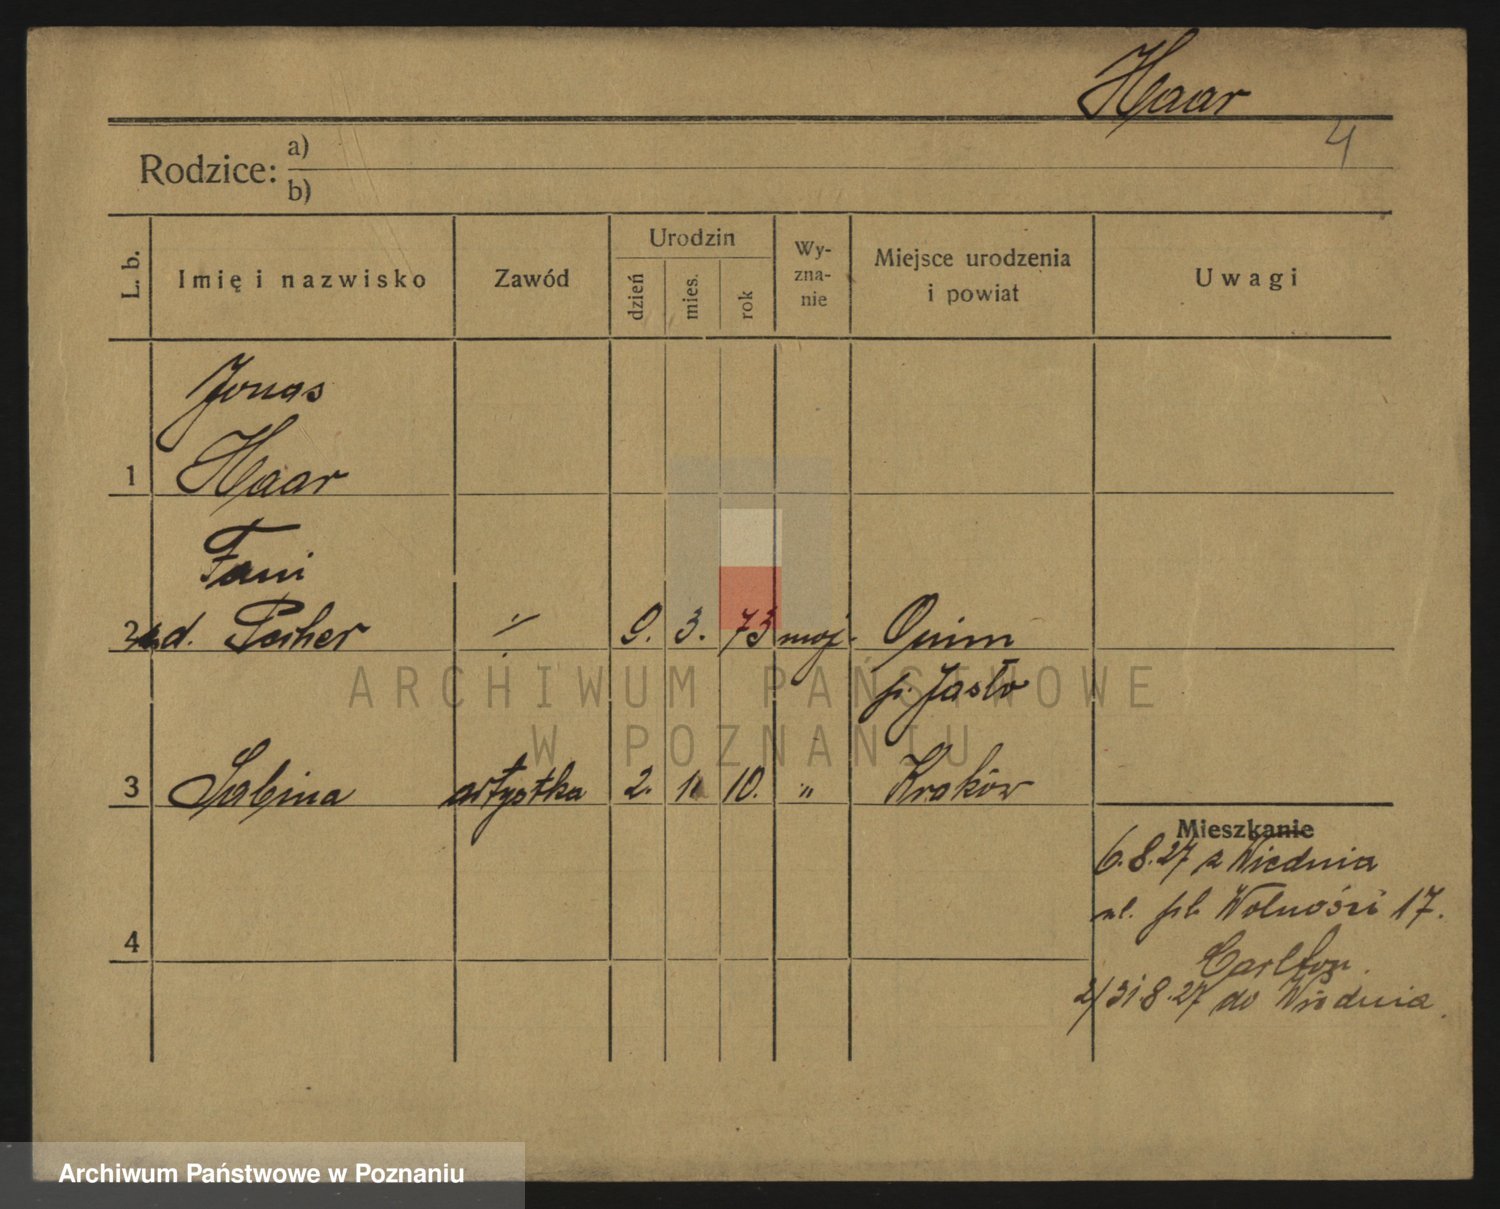 Haar
4
Rodzice:
a)
b)
L. b.
Imię i nazwisko
Zawód
Urodzin
dzień
mies.
rok
Wy-
zna-
nie
Miejsce urodzenia
i powiat
Uwagi
Jonas
1 Haar
Fani
2 d. Pecher ·/· 9. 3. 73 moj.
p. Jasło
3 Sabina artystka 2. 10. „ Kraków
Mieszkanie
6.8.27 z Wiednia
ul. pl. Wolności 17.
Carlton.
2/31.8.27 do Wiednia.
4
ARCHIWUM PAŃSTWOWE
W POZNANIU
Archiwum Państwowe w Poznaniu